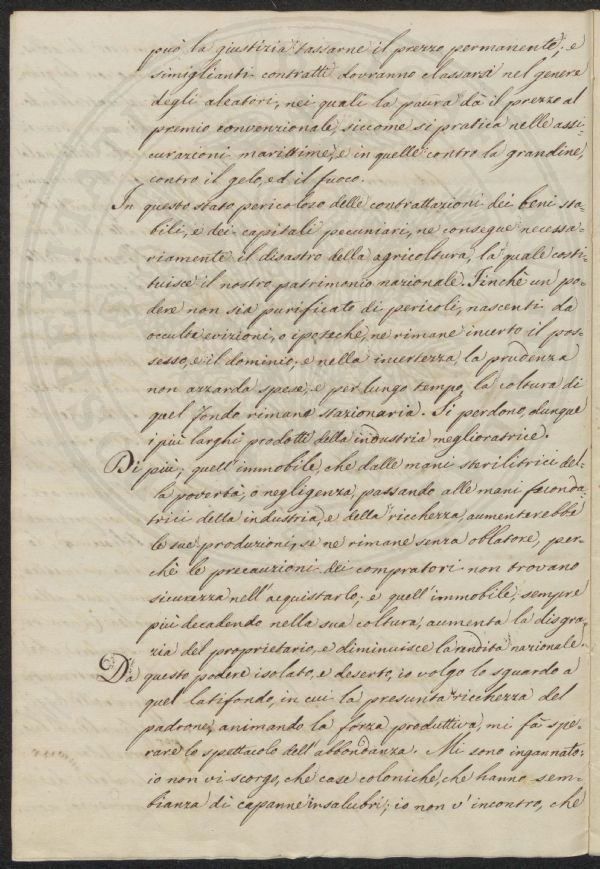 può la giustizia tassarne il prezzo permanente; e
simiglianti contratti dovranno classarsi nel genere
degli aleatori, nei quali la paura dà il prezzo al
premio convenzionale, siccome si pratica nelle assi-
curazioni marittime, e in quelle contro la grandine,
contro il gelo, ed il fuoco.
In questo stato pericoloso delle contrattazioni dei beni sta-
bili, e dei capitali pecuniari, ne consegue necessa-
riamente il disastro della agricoltura, la quale costi-
tuisce il nostro patrimonio nazionale. Finchè un po-
dere non sia purificato di pericoli, nascenti da
occulte evizioni, o ipoteche, ne rimane incerto il pos-
sesso, e il dominio; e nella incertezza la prudenza
non azzarda spese, e per lungo tempo la coltura di
quel fondo rimane stazionaria. Si perdono, dunque
i più larghi prodotti della industria meglioratrice.
Di più, quell'immobile, che dalle mani sterilitrici del-
la povertà, o negligenza, passando alle mani feconda-
trici della industria, e della ricchezza, aumenterebbe
le sue produzioni, se ne rimane senza oblatore, per-
chè le precauzioni dei compratori non trovano
sicurezza nell'acquistarlo; e quell'immobile, sempre
più decadendo nella sua coltura, aumenta la disgra-
zia del proprietario, e diminuisce la rendita nazionale.
Da questo podere isolato, e deserto, io volgo lo sguardo a
quel latifondo, in cui la presunta ricchezza del
padrone, animando la forza produttiva, mi fà spe-
rare lo spettacolo dell'abbondanza. Mi sono ingannato:
io non vi scorgo, che case coloniche, che hanno sem-
bianza di capanne insalubri; io non v'incontro, che